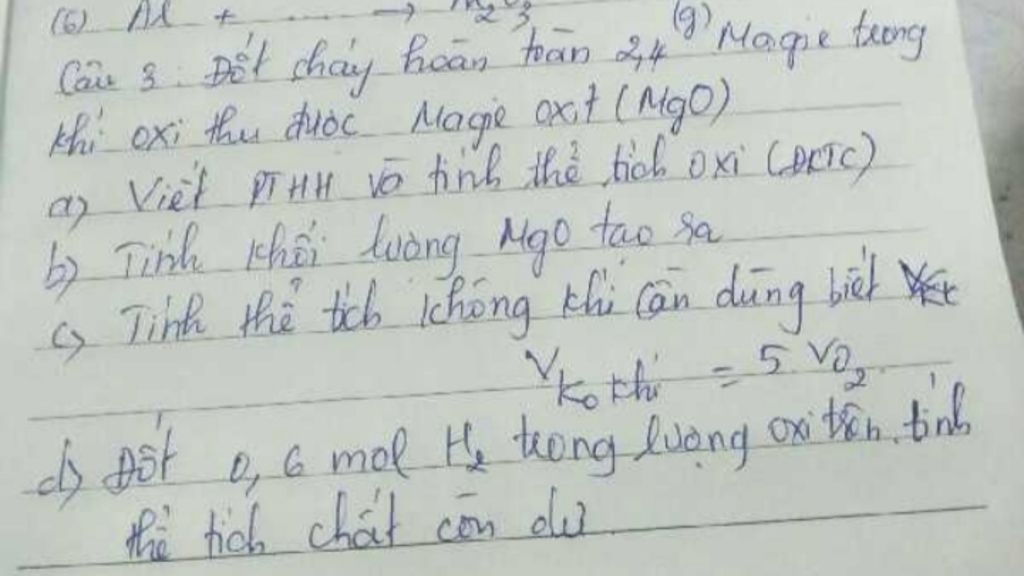 (6) Al + ..... → Al2O3
Câu 3: Đốt cháy hoàn toàn 2,4 (g) Magie trong
khí oxi thu được Magie oxit (MgO)
a) Viết PTHH và tính thể tích oxi (ĐKTC)
b) Tính khối lượng MgO tạo ra
c) Tính thể tích không khí cần dùng biết
Vko khí = 5 VO2
d) Đốt 0,6 mol H2 trong lượng oxi trên. tính
thể tích chất còn dư